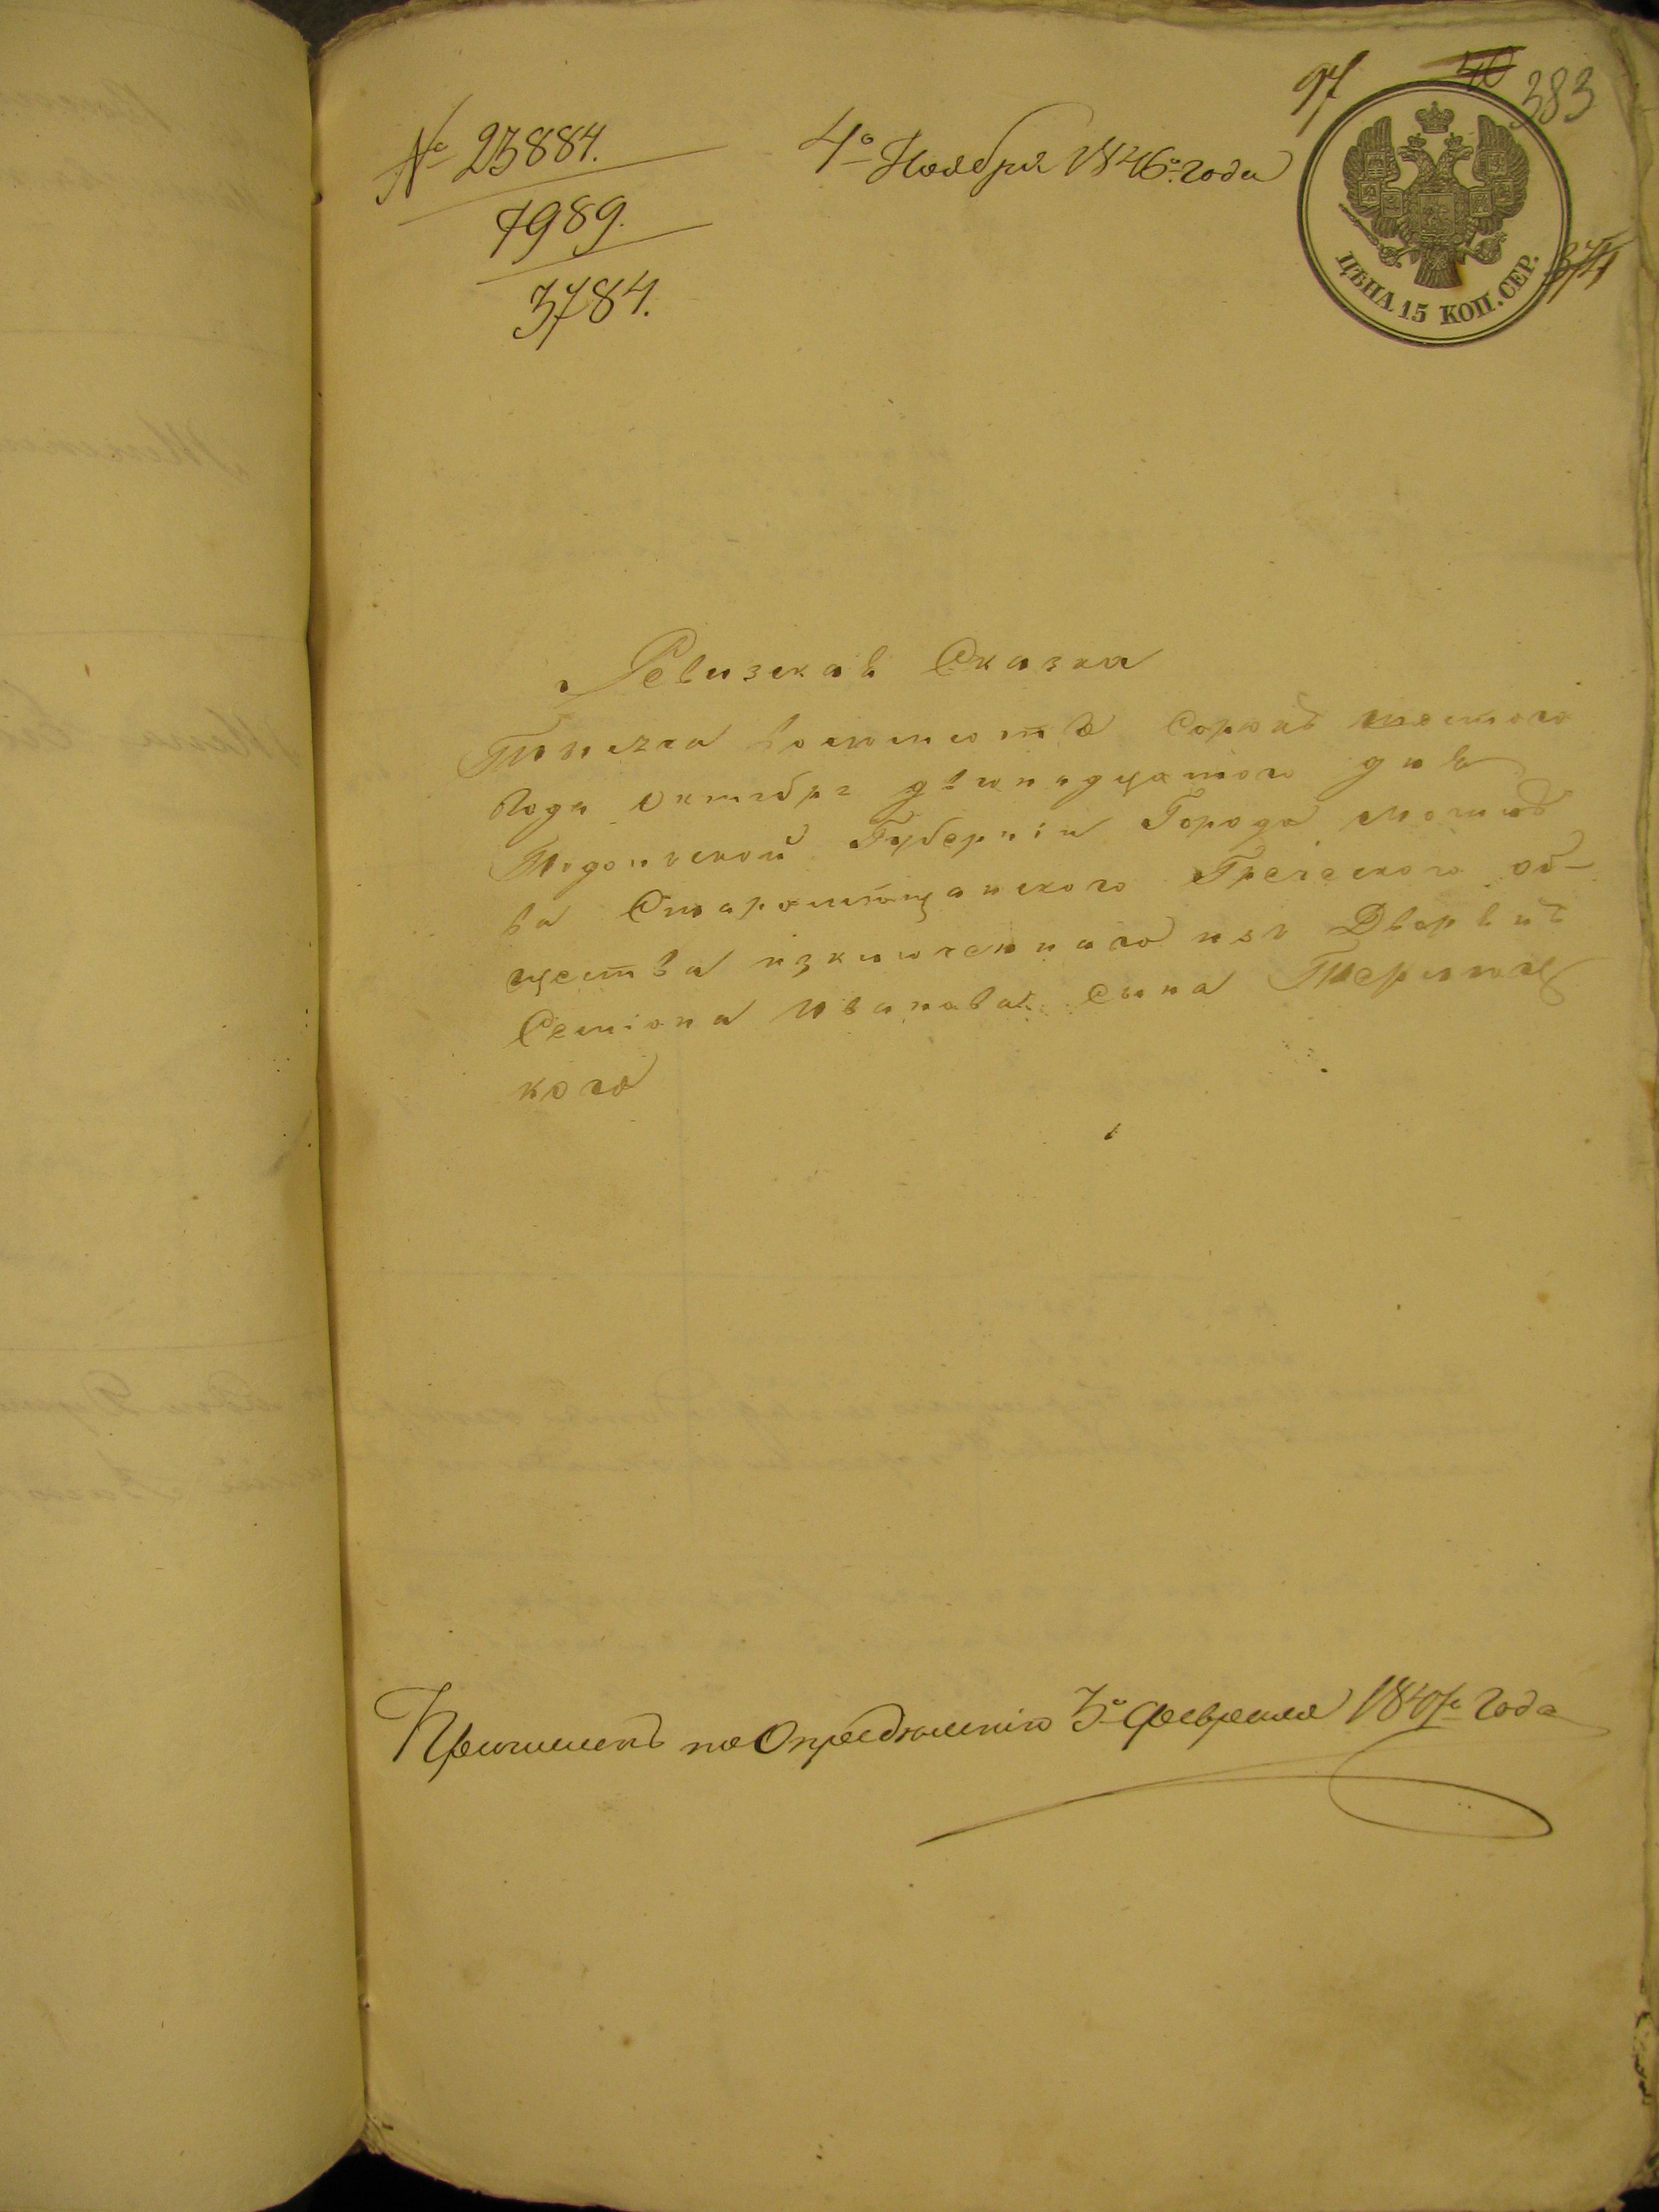 97 40 383
№ 23884.
7989.
3784.
4го Ноября 1846го года
ЦѢНА 15 КОП. СЕР.
374
Ревизская Сказка
Тысяча восемсотъ Сорокъ шестого
Года Октября двенадцатого дня
Подольской Губерніи Города Могилѣ
ва Старомещанского Греческого об-
щества изключеннаго изъ Дворянъ
Семіона Иванова Сына
кого
По Опредѣленію 3го Февраля 1847го Года